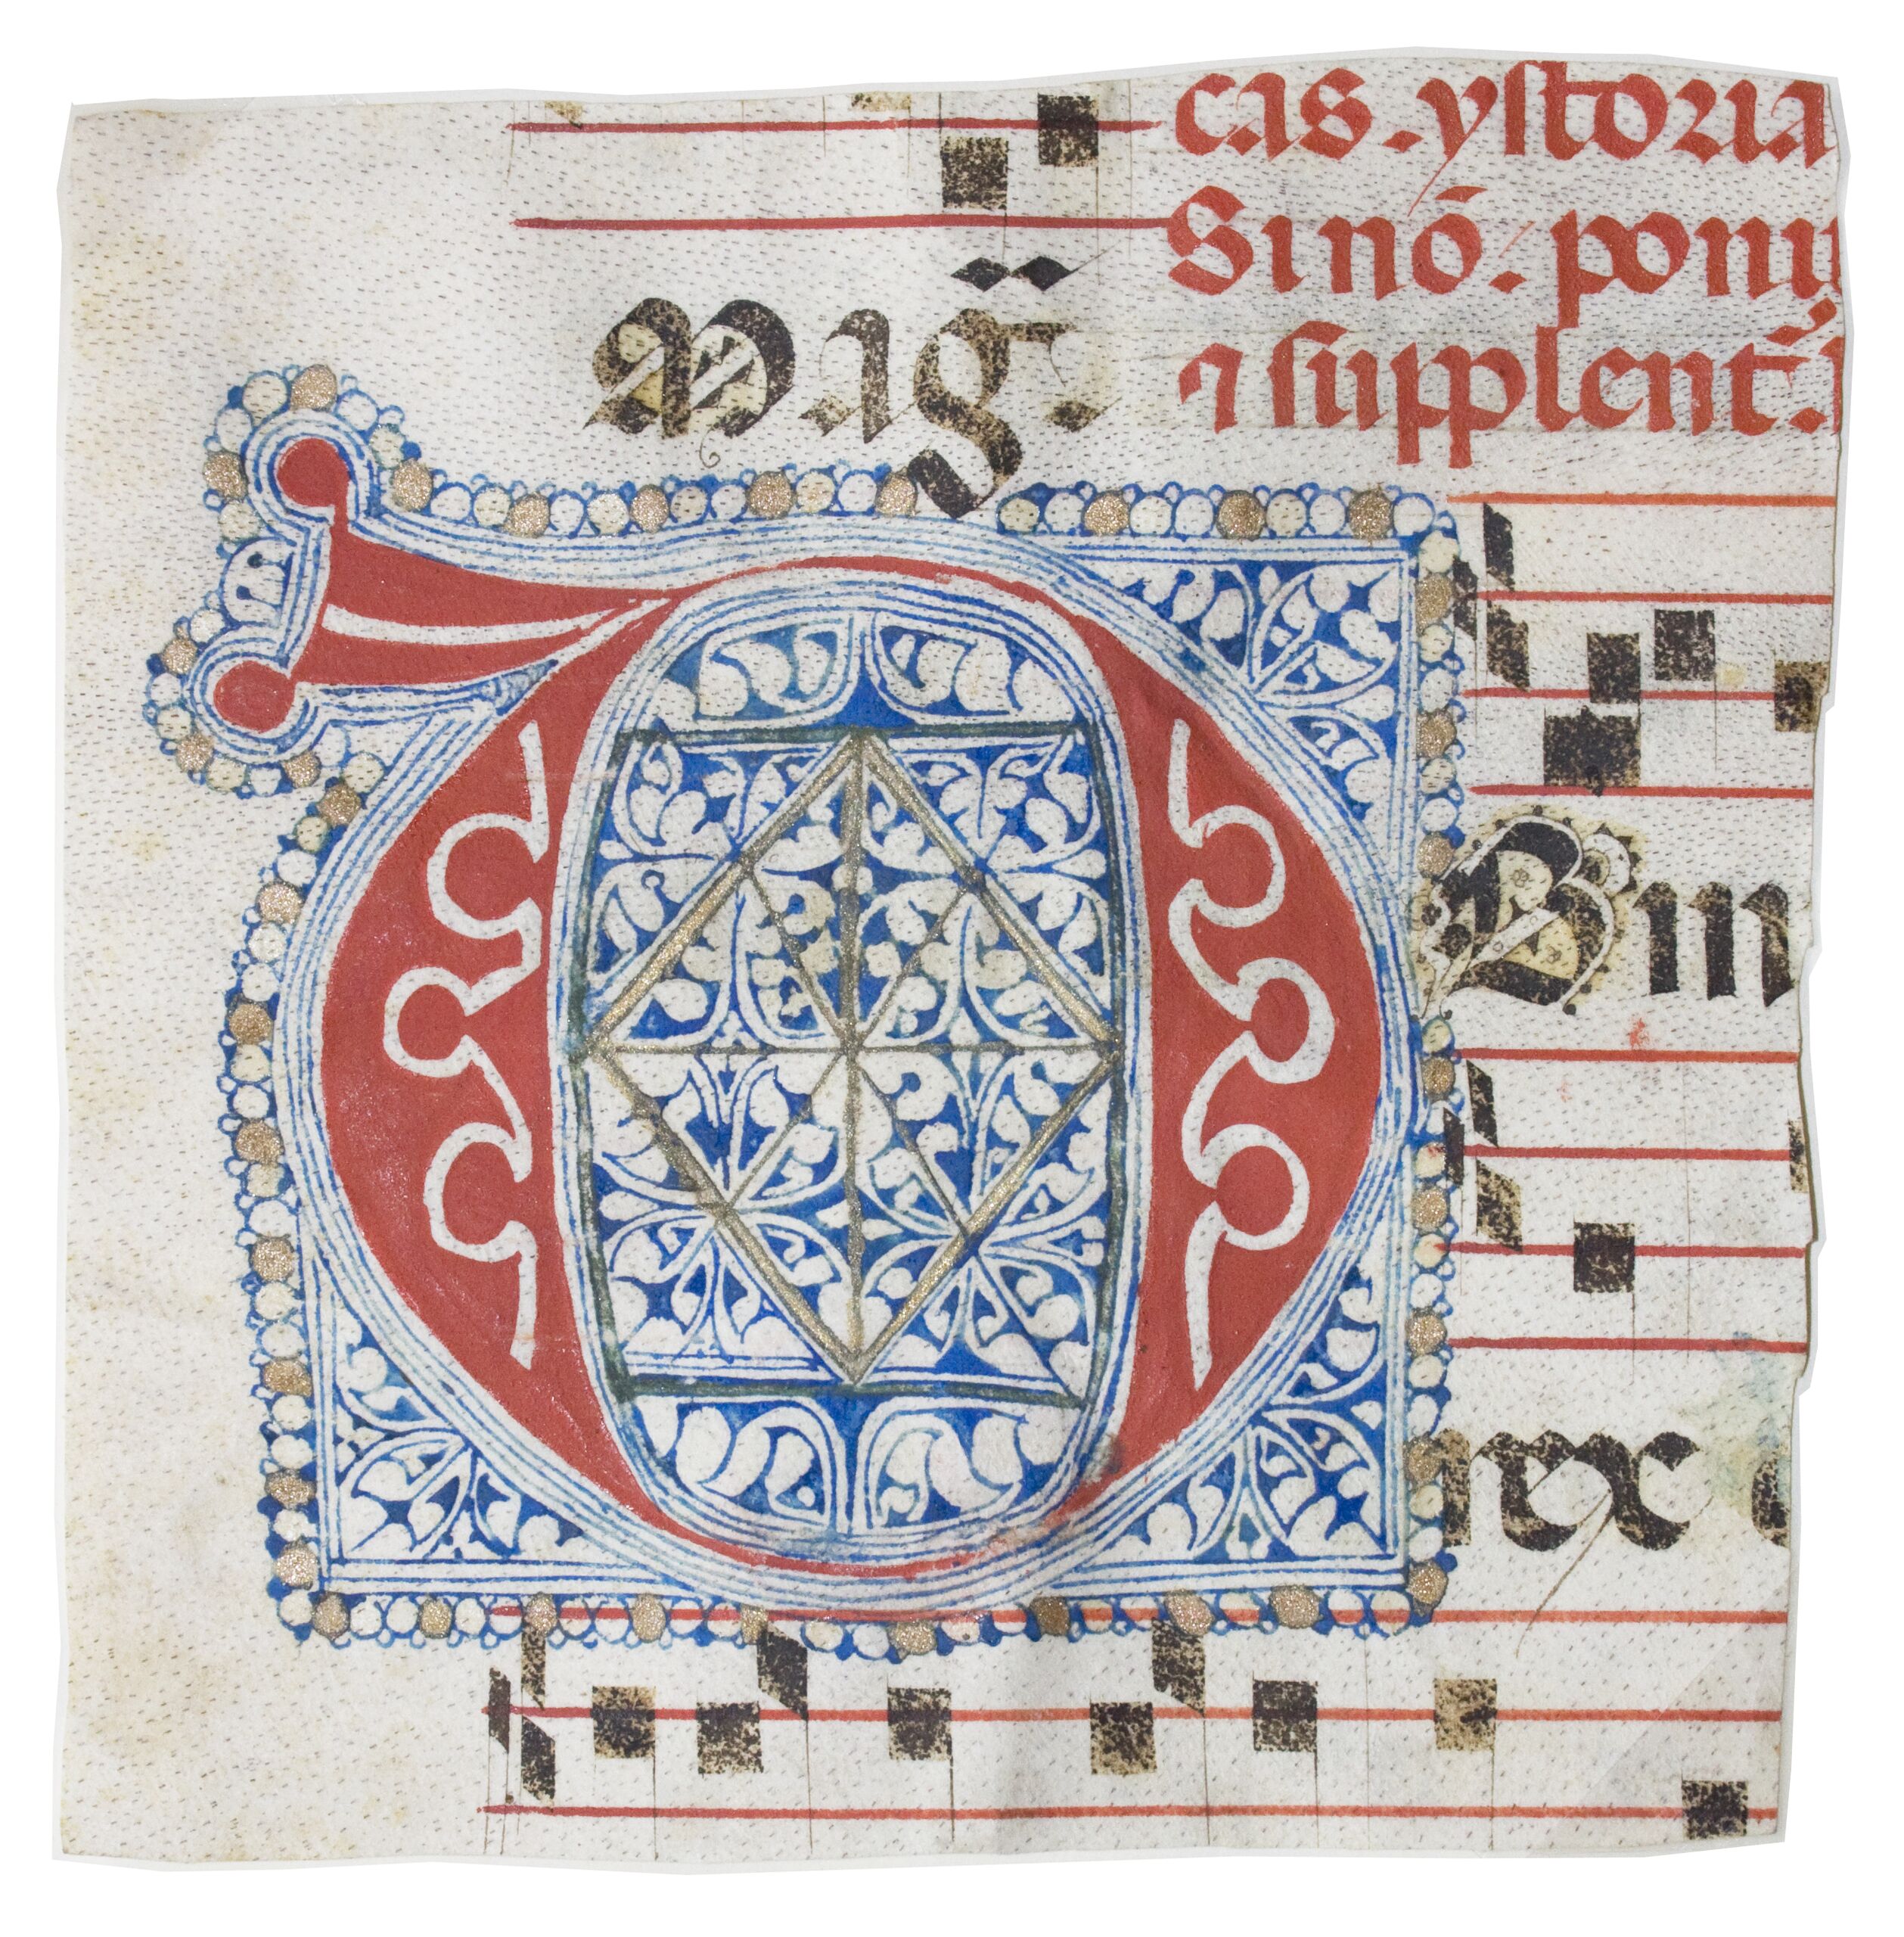 cas. ystoria
Sinō. pony
Mag̃.
⁊ supplent.
D
Om
rex